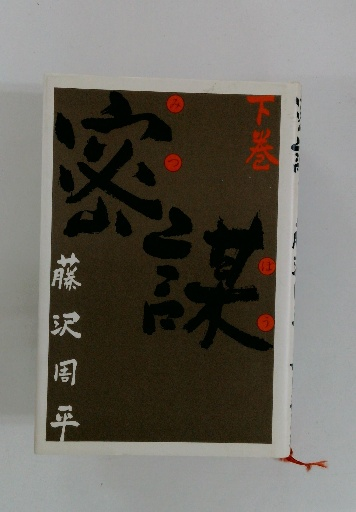 下巻
密謀
みつ
ぼう
藤沢周平